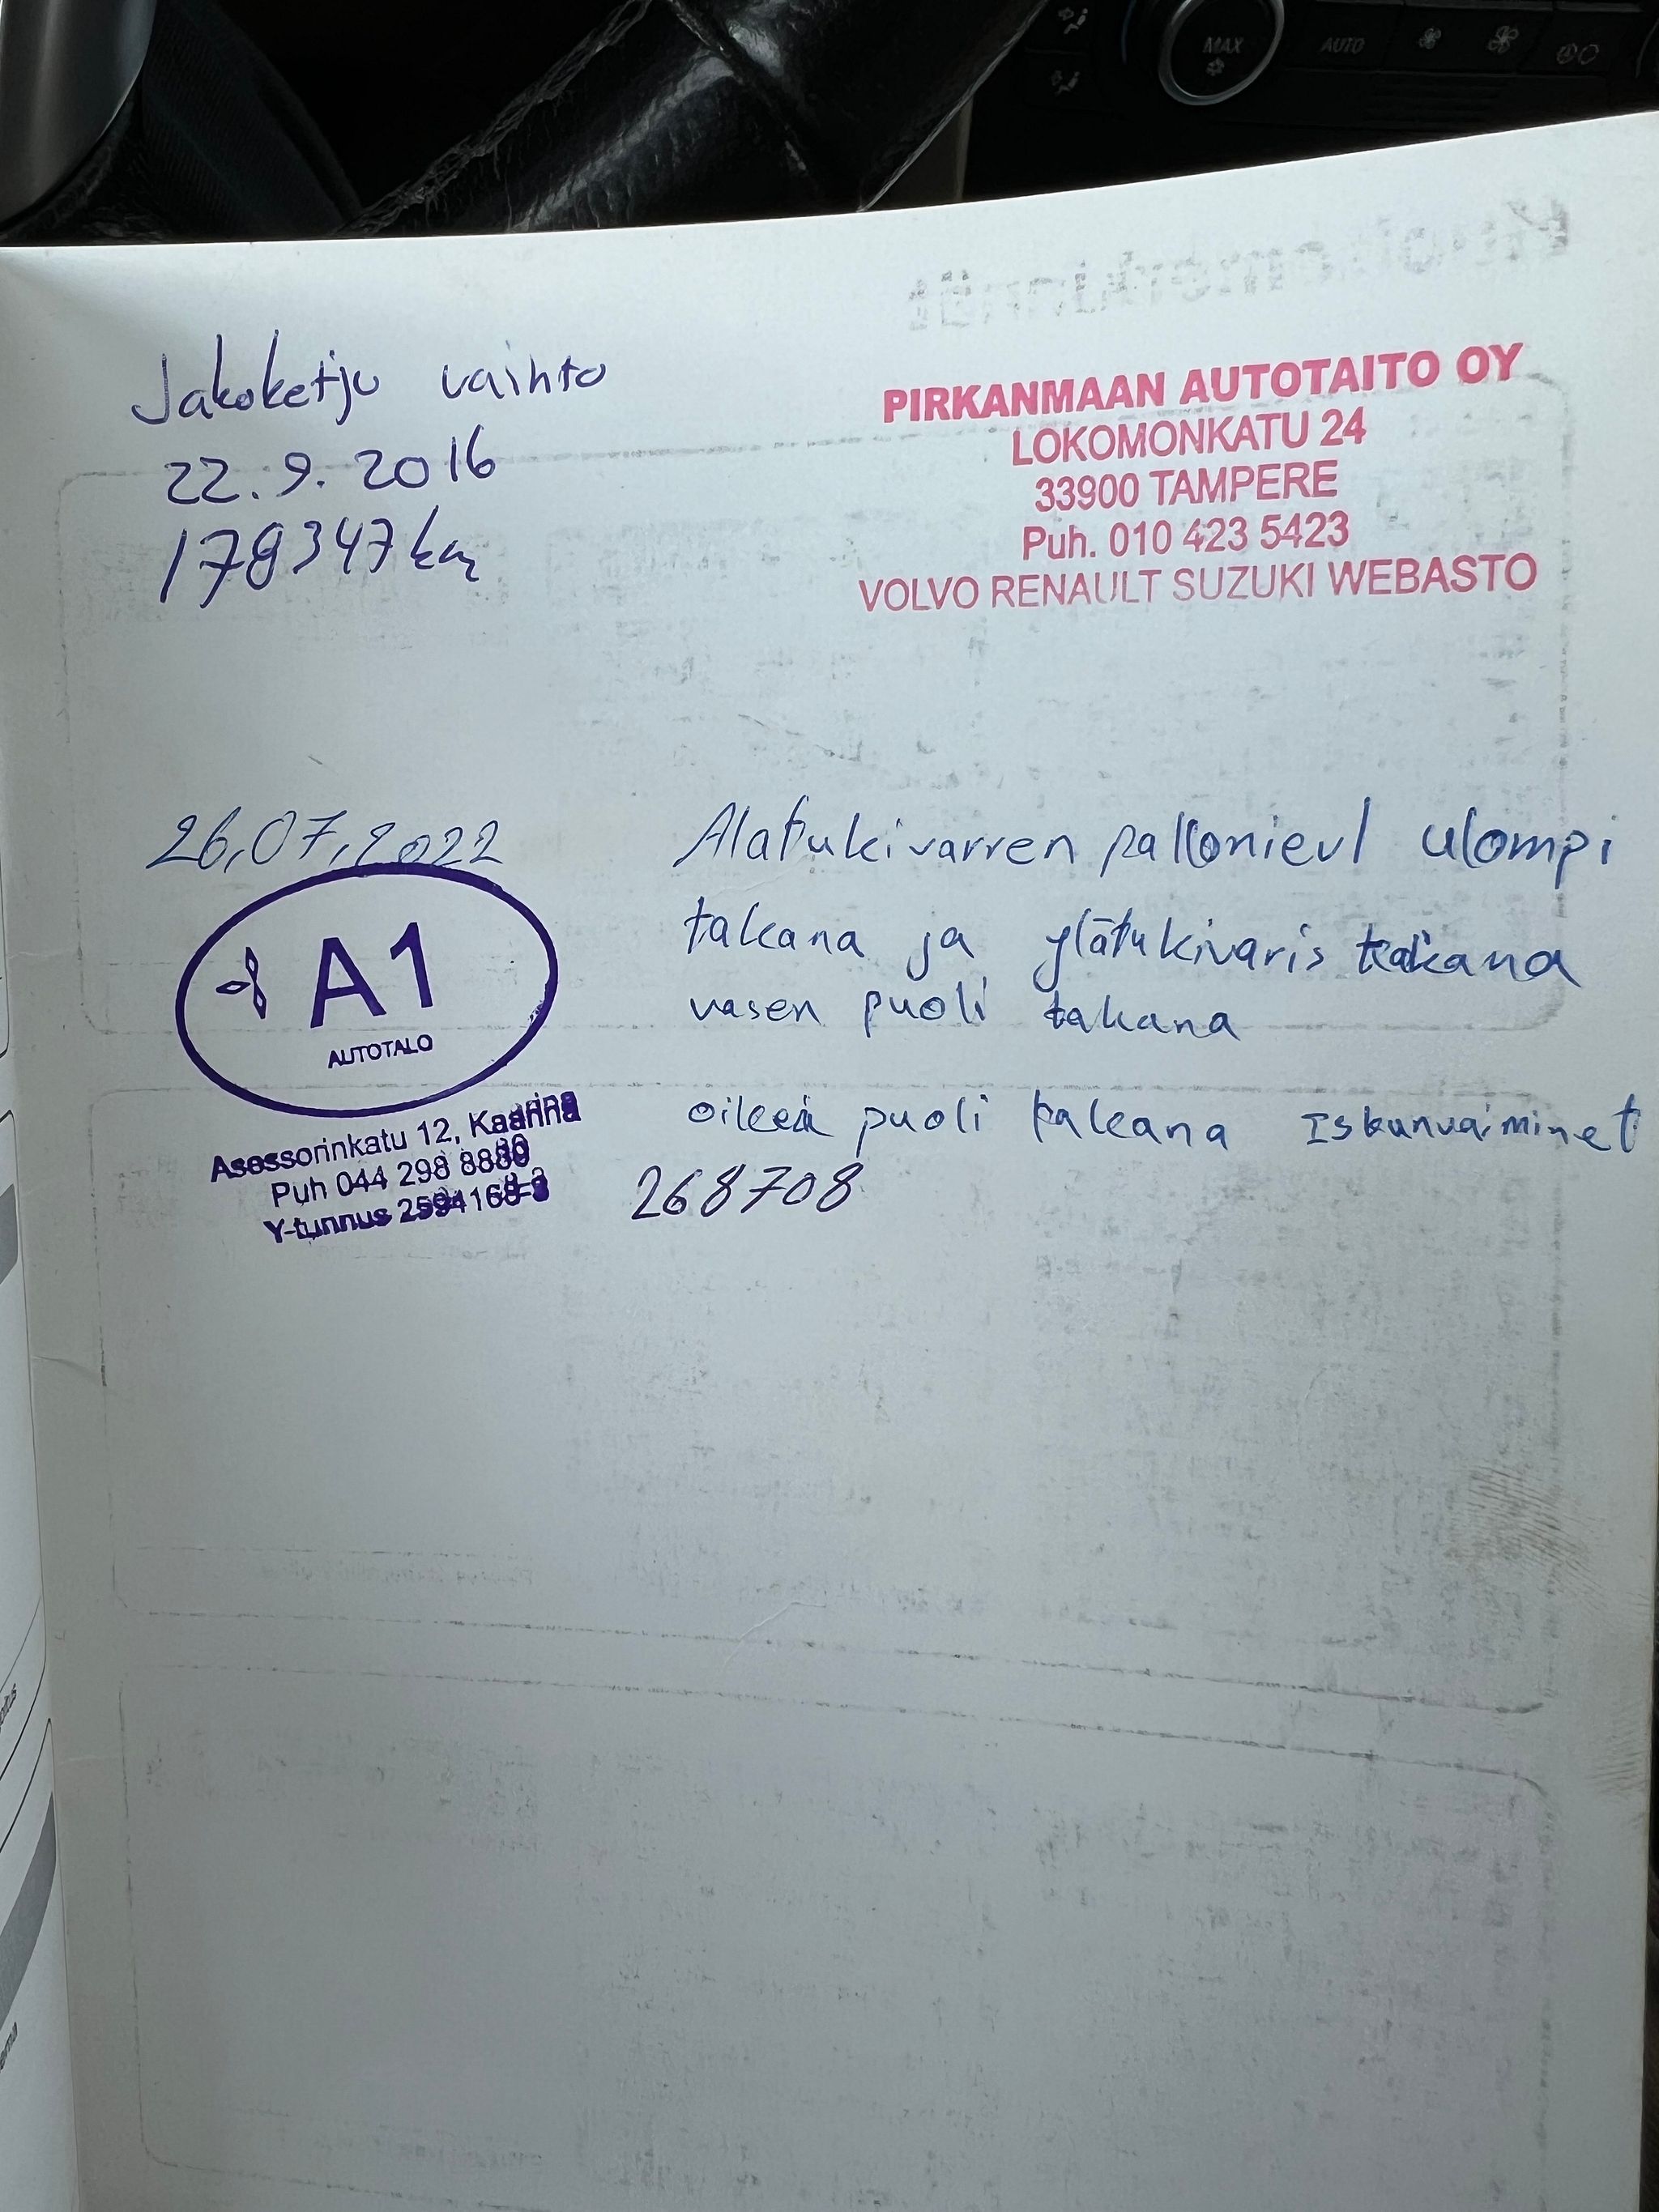 MAX
AUTO
Jakoketju vaihto
22.9.2016
178347 km
PIRKANMAAN AUTOTAITO OY
LOKOMONKATU 24
33900 TAMPERE
Puh. 010 423 5423
VOLVO RENAULT SUZUKI WEBASTO
26.07.2022
A1
AUTOTALO
Asessorinkatu 12, Kaarina
Puh 044 298 8880
Y-tunnus
Alatukivarren pallonievl ulompi
takana ja ylätukivaris takana
vasen puoli takana
oikea puoli takana Iskunvaiminet
268708